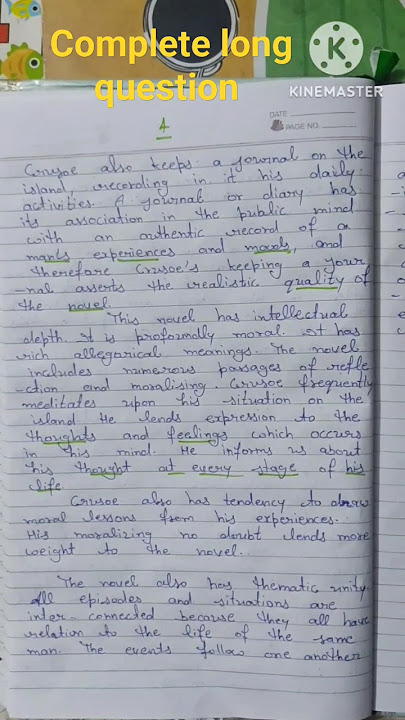 Complete long
question
KINEMASTER
4
DATE
PAGE NO.
Crusoe also keeps a journal on the
island, recording in it his daily
activities. A journal or diary has
its association in the public mind
with an authentic record of a
man's experiences and moods, and
therefore Crusoe's keeping a jour
-nal asserts the realistic quality of
the novel.
This novel has intellectual
depth. It is profoundly moral. It has
rich allegorical meanings. The novel
includes numerous passages of refle
-ction and moralising. Crusoe frequently
meditates upon his situation on the
island He lends expression to the
thoughts and feelings which occurs
in his mind. He informs us about
his thought at every stage of his
life.
Crusoe also has tendency to draw
moral lessons from his experiences.
His moralizing no doubt lends more
weight to the novel.
The novel also has thematic unity.
All episodes and situations are
inter-connected because they all have
relation to the life of the same
man. The events follow one another